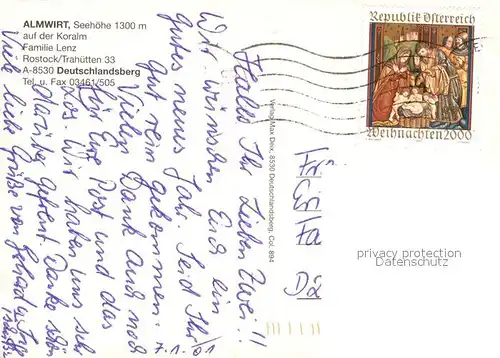 ALMWIRT, Seehöhe 1300 m
auf der Koralm
Familie Lenz
Rostock/Trahütten 33
A-8530 Deutschlandsberg
Tel. u. Fax 03461/505
Republik Österreich
Weihnachten 2000
Hallo Ihr Lieben Zwei!!
Wir wünschen Euch ein
gutes neues Jahr. Seid Ihr
gut rein gekommen.
Vielen Dank auch noch
für Eure Post und das
Wir haben uns sehr
gefreut. Danke schön
Viele liebe Grüße von
1.01
Verlag Max Deix, 8530 Deutschlandsberg, Col. 894
privacy protection
Datenschutz